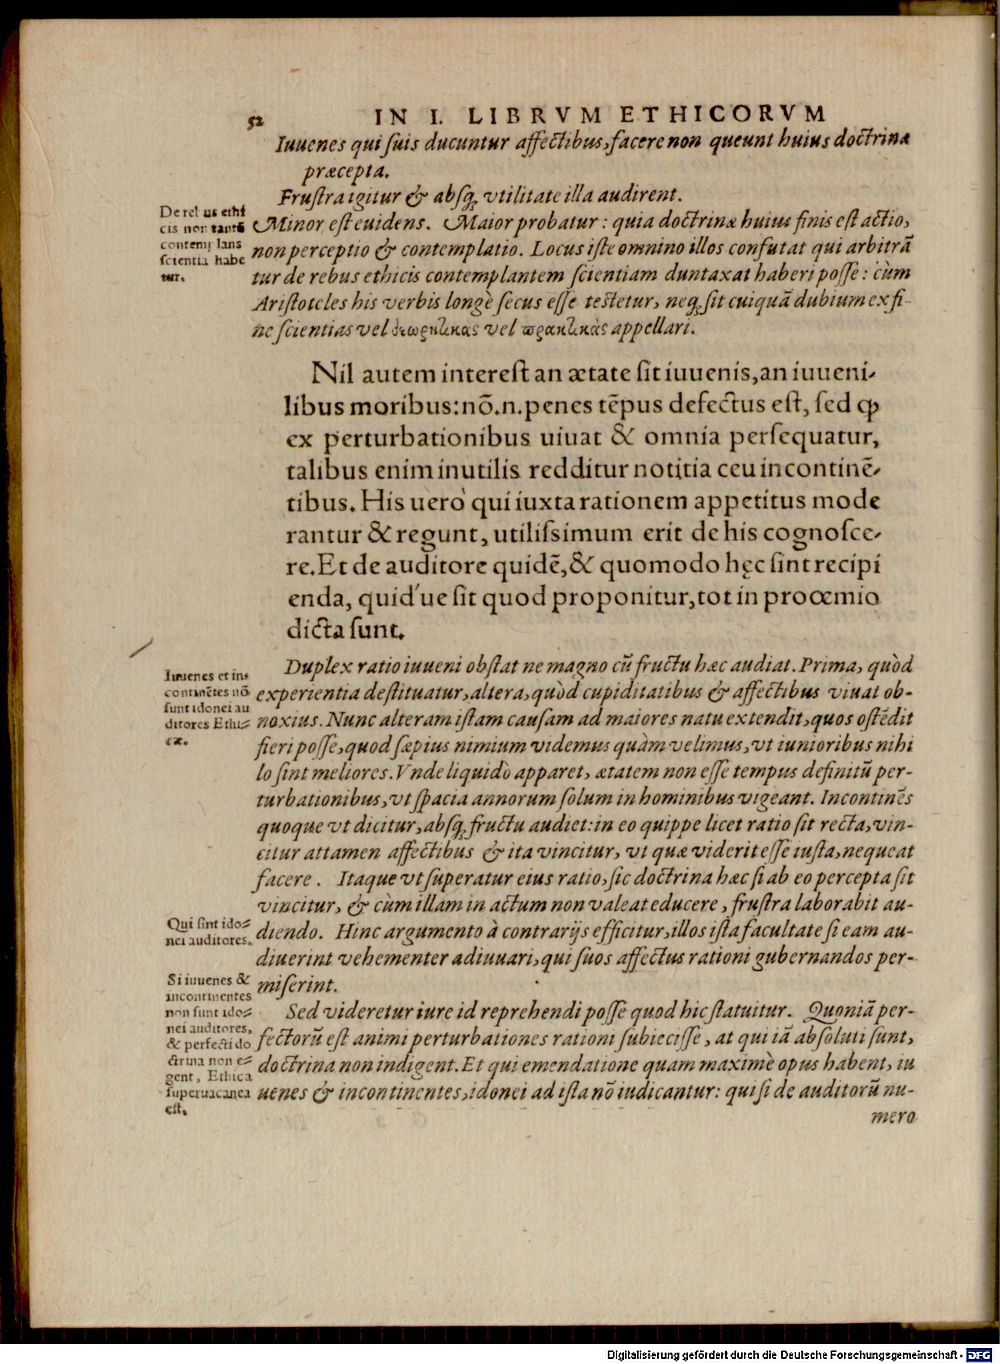 52 IN I. LIBRVM ETHICORVM
Iuuenes qui suis ducuntur affectibus, facere non queunt huius doctrinæ
præcepta.
Frustra igitur & absq; vtilitate illa audirent.
De rebus ethi
cis non tantũ
contemplans
scientia habe
tur.
Minor est euidens. Maior probatur: quia doctrinæ huius finis est actio,
non perceptio & contemplatio. Locus iste omnino illos confutat qui arbitrã
tur de rebus ethicis contemplantem scientiam duntaxat haberi posse: cùm
Aristoteles his verbis longè secus esse testetur, neq; sit cuiquã dubium ex fi-
ne scientias vel θεωρητικας vel πρακτικὰς appellari.
Nil autem interest an ætate sit iuuenis, an iuueni-
libus moribus: nõ.n. penes tẽpus defectus est, sed ꝙ
ex perturbationibus uiuat & omnia persequatur,
talibus enim inutilis redditur notitia ceu incontinẽ-
tibus. His uerò qui iuxta rationem appetitus mode
rantur & regunt, utilissimum erit de his cognosce-
re. Et de auditore quidẽ, & quomodo hęc sint recipi
enda, quid'ue sit quod proponitur, tot in proœmio
dicta sunt.
Iuuenes et in-
continẽtes nõ
sunt idonei au
ditores Ethi-
cæ.
Duplex ratio iuueni obstat ne magno cũ fructu hæc audiat. Prima, quòd
experientia destituatur, altera, quòd cupiditatibus & affectibus viuat ob-
noxius. Nunc alteram istam causam ad maiores natu extendit, quos ostẽdit
fieri posse, quod sæpius nimium videmus quàm velimus, vt iunioribus nihi
lo sint meliores. Vnde liquidò apparet, ætatem non esse tempus definitũ per-
turbationibus, vt spacia annorum solum in hominibus vigeant. Incontinẽs
quoque vt dicitur, absq; fructu audiet: in eo quippe licet ratio sit recta, vin-
citur attamen affectibus & ita vincitur, vt quæ viderit esse iusta, nequeat
facere. Itaque vt superatur eius ratio, sic doctrina hæc si ab eo percepta sit
vincitur, & cùm illam in actum non valeat educere, frustra laborabit au-
Qui sint ido-
nei auditores.
diendo. Hinc argumento à contrarijs efficitur, illos ista facultate si eam au-
diuerint vehementer adiuuari, qui suos affectus rationi gubernandos per-
miserint.
Si iuuenes &
incontinentes
non sunt ido-
nei auditores,
& perfecti do
ctrina non e-
gent, Ethica
superuacanea
est.
Sed videretur iure id reprehendi posse quod hic statuitur. Quoniã per-
fectorũ est animi perturbationes rationi subiecisse, at qui iã absoluti sunt,
doctrina non indigent. Et qui emendatione quam maximè opus habent, iu
uenes & incontinentes, idonei ad ista nõ iudicantur: qui si de auditorũ nu-
mero
Digitalisierung gefördert durch die Deutsche Forschungsgemeinschaft - DFG